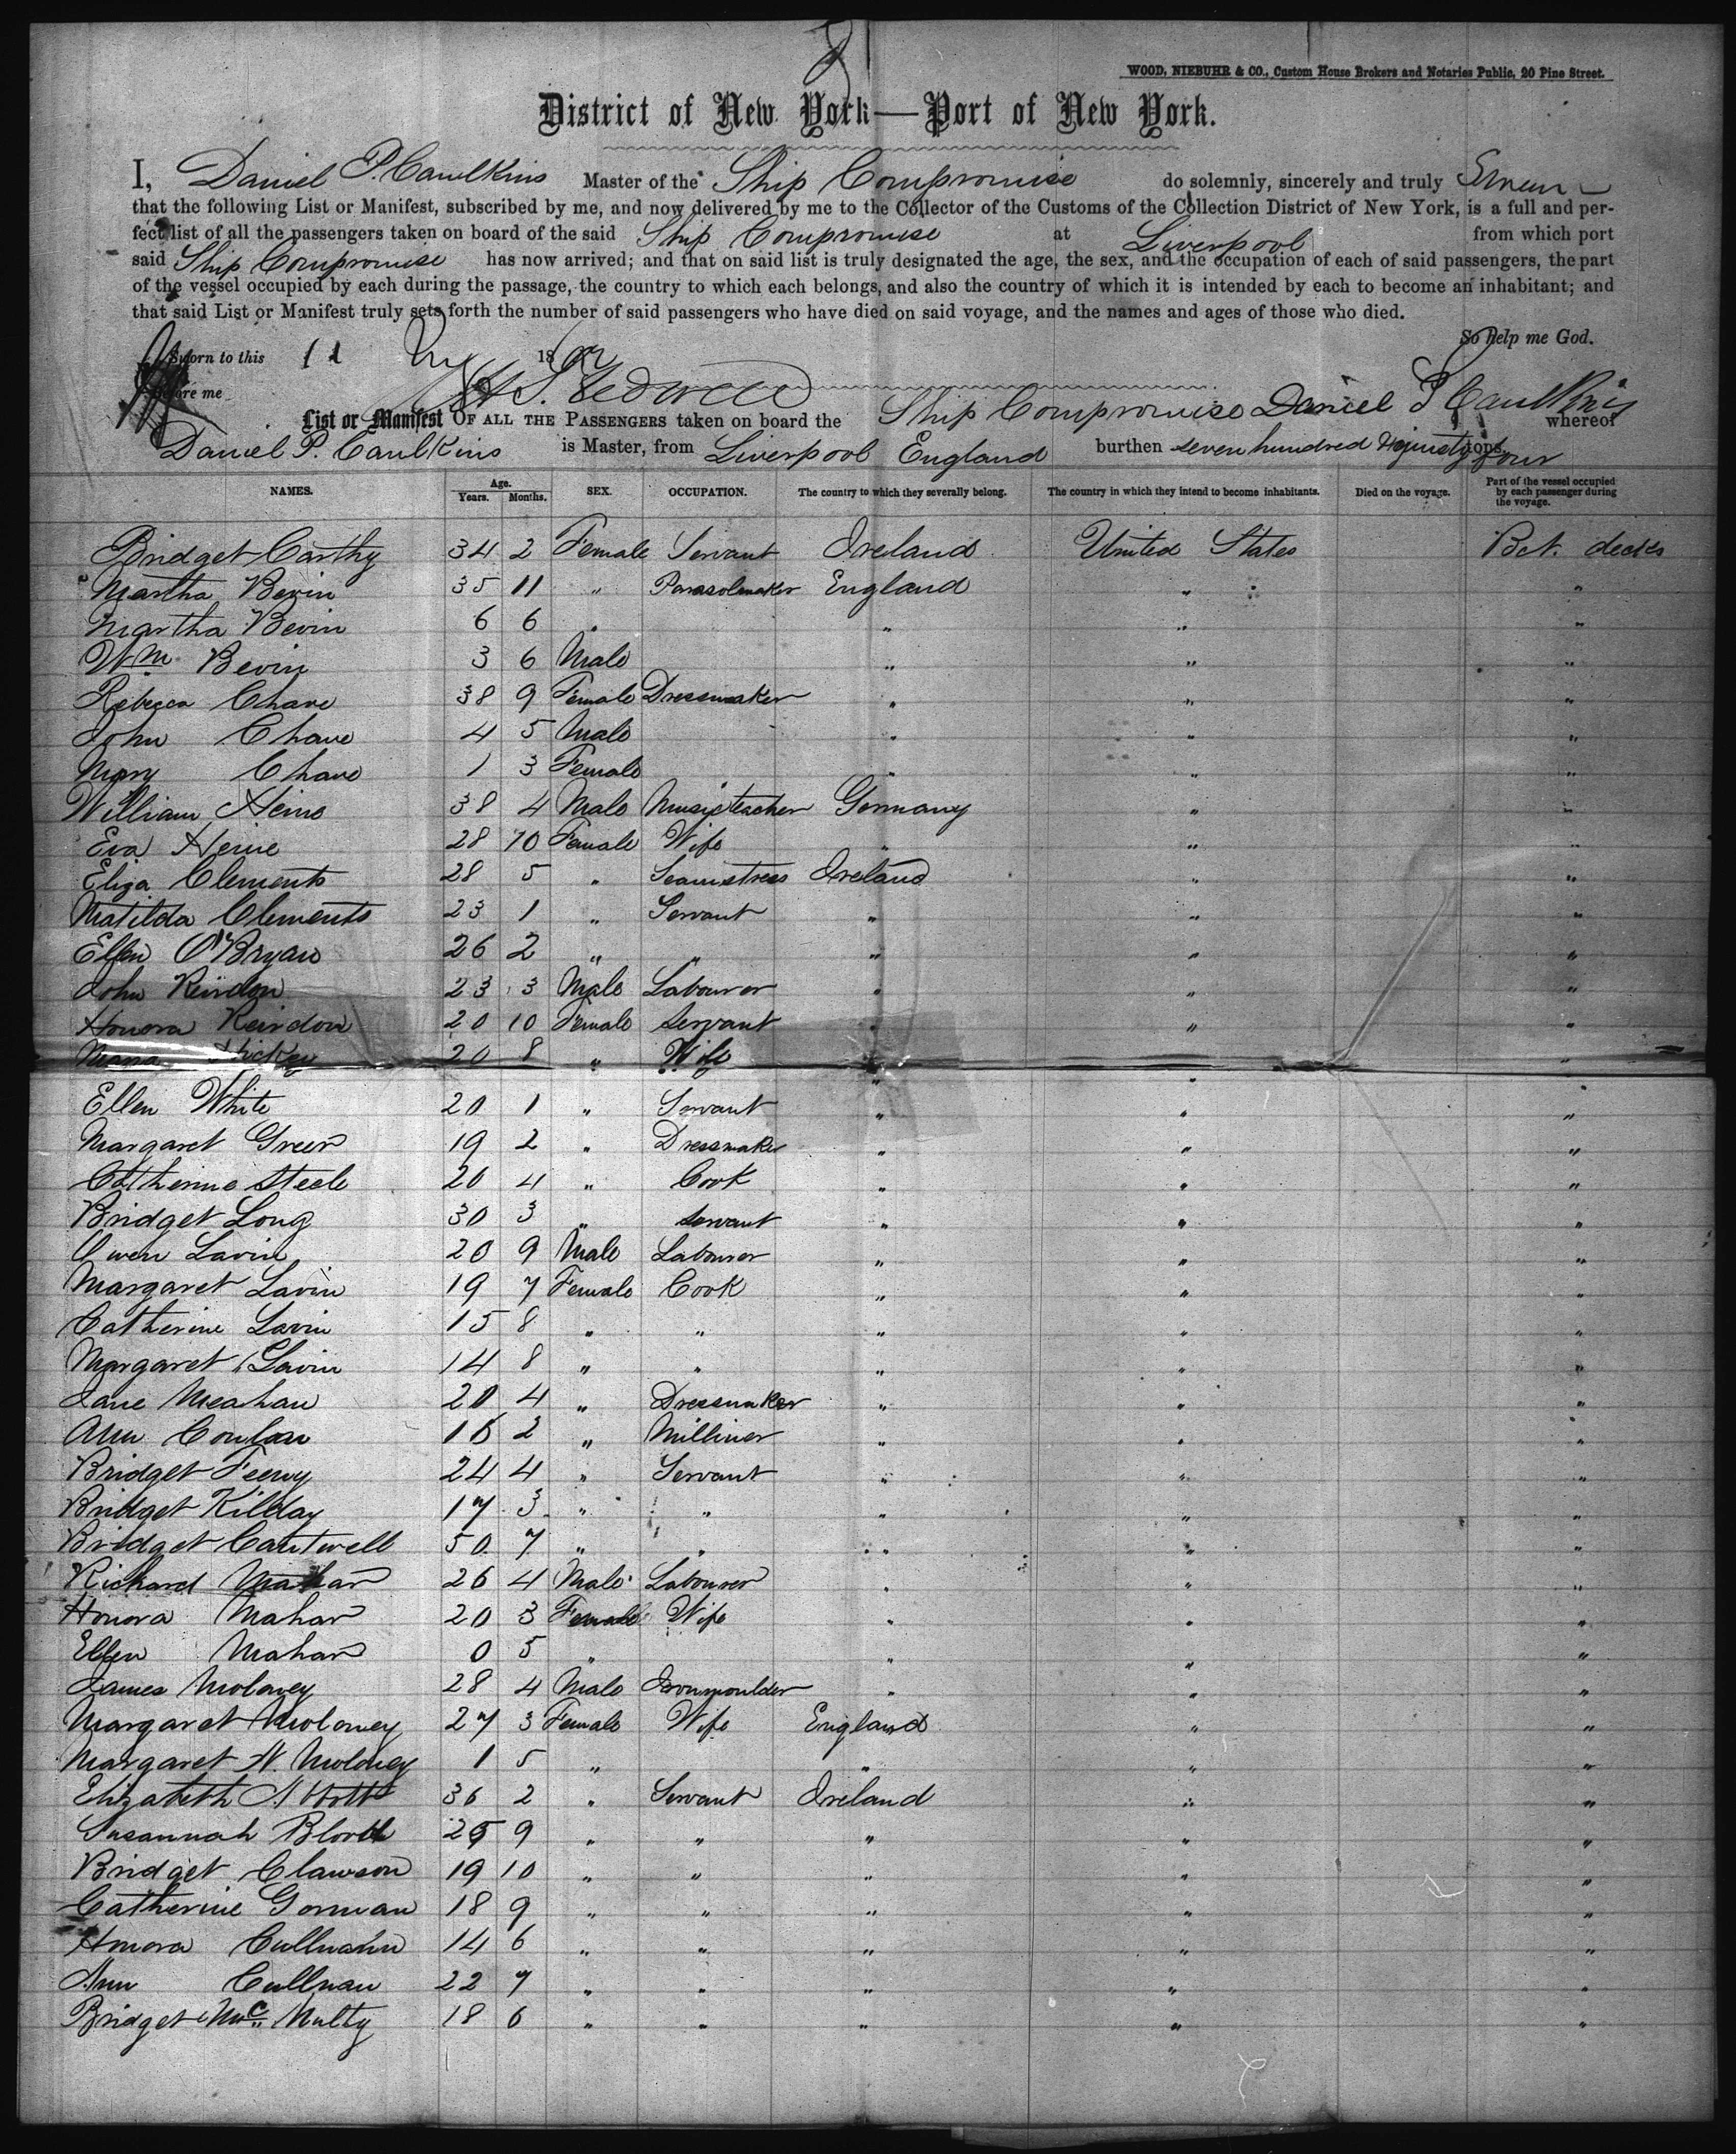 WOOD, NIEBUHR & CO., Custom House Brokers and Notaries Public, 20 Pine Street.
District of New York—Port of New York.
I, Daniel P. Caulkins Master of the Ship Compromise do solemnly, sincerely and truly Swear
that the following List or Manifest, subscribed by me, and now delivered by me to the Collector of the Customs of the Collection District of New York, is a full and per-
fect list of all the passengers taken on board of the said Ship Compromise at Liverpool from which port
said Ship Compromise has now arrived; and that on said list is truly designated the age, the sex, and the occupation of each of said passengers, the part
of the vessel occupied by each during the passage, the country to which each belongs, and also the country of which it is intended by each to become an inhabitant; and
that said List or Manifest truly sets forth the number of said passengers who have died on said voyage, and the names and ages of those who died.
So help me God.
Sworn to this 11 18
Before me Daniel P Caulkins
List or Manifest OF ALL THE PASSENGERS taken on board the Ship Compromise whereof
Daniel P. Caulkins is Master, from Liverpool England burthen seven hundred Ninety four tons
NAMES. Age. Years. Months. SEX. OCCUPATION. The country to which they severally belong. The country in which they intend to become inhabitants. Died on the voyage. Part of the vessel occupied by each passenger during the voyage.
Bridget Carthy 34 2 Female Servant Ireland United States Bet. decks
Martha Bevin 35 11 " Parasolmaker England " "
Martha Bevin 6 6 " " " "
Wm. Bevin 3 6 Male " " "
Rebecca Chave 38 9 Female Dressmaker " " "
John Chave 4 5 Male " " "
Mary Chave 1 3 Female " " "
William Heine 38 4 Male Musicteacher Germany " "
Eva Heine 28 10 Female Wife " " "
Eliza Clements 28 5 " Seamstress Ireland " "
Matilda Clements 23 1 " Servant " " "
Ellen O'Bryan 26 2 " " " " "
John Reirdon 23 3 Male Labourer " " "
Honora Reirdon 20 10 Female Servant " " "
Maria Hickey 20 8 " Wife " " "
Ellen White 20 1 " Servant " " "
Margaret Green 19 2 " Dressmaker " " "
Catherine Steele 20 4 " Cook " " "
Bridget Long 30 3 " Servant " " "
Owen Lavin 20 9 Male Labourer " " "
Margaret Lavin 19 7 Female Cook " " "
Catherine Lavin 15 8 " " " " "
Margaret Lavin 14 8 " " " " "
Jane Meahan 20 4 " Dressmaker " " "
Ann Conlan 2 " Milliner " " "
Bridget Feeny 24 4 " Servant " " "
Bridget Kilday 17 3 " " " " "
Bridget Cantwell 50 7 " " " " "
Richard Mahar 26 4 Male Labourer " " "
Honora Mahar 20 3 Female Wife " " "
Ellen Mahar 0 5 " " " "
James Moloney 28 4 Male Ironmoulder " " "
Margaret Moloney 27 3 Female Wife England " "
Margaret N. Moloney 1 5 " " " "
Elizabeth Abbott 36 2 " Servant Ireland " "
Susannah 9 " " " " "
Bridget Clawson 19 10 " " " " "
Catherine Gorman 18 9 " " " " "
Honora Cullnahn 14 6 " " " " "
Ann Cullnan 22 7 " " " " "
Bridget McNulty 18 6 " " " " "